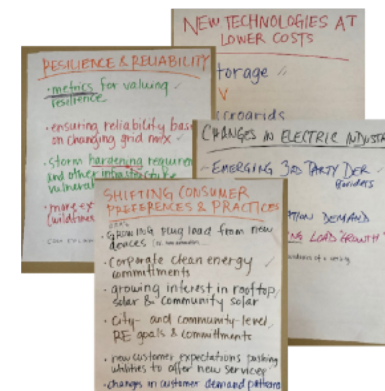 NEW TECHNOLOGIES AT
LOWER COSTS
torage
V
crogrids
RESILIENCE & RELIABILITY
• metrics for valuing
resilience
• ensuring reliability bas
on changing grid mix
• storm hardening requirem
and other infrastructure
vulnera
• more ex
(wildfires
CHANGES IN ELECTRIC INDUST
- EMERGING 3RD PARTY DER
Providers
ATION DEMAND
NG LOAD GROWTH
SHIFTING CONSUMER
PREFERENCES & PRACTICES
• GROWING plug load from new
devices
• Corporate clean energy
commitments
• growing interest in rooftop
solar & community solar
• City- and community-level
RE goals & commitments
• new customer expectations pushing
utilities to offer new services
• changes in customer demand patterns